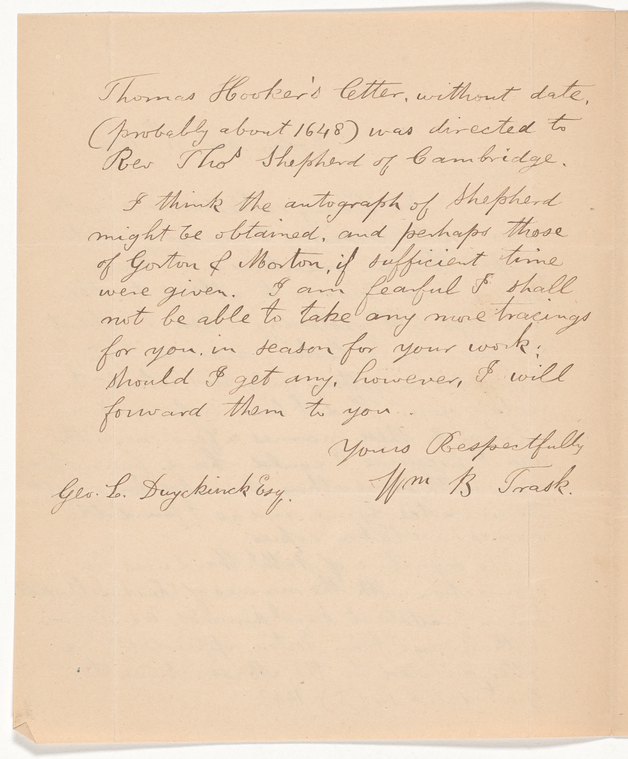 Thomas Hooker's letter, without date,
(probably about 1648) was directed to
Rev Thos Shepherd of Cambridge.
I think the autograph of Shepherd
might be obtained, and perhaps those
of Gorton & Morton, if sufficient time
were given. I am fearful I shall
not be able to take any more tracings
for you, in season for your work;
should I get any, however, I will
forward them to you.
Yours Respectfully
Wm B Trask.
Geo. L. Duyckinck Esq.